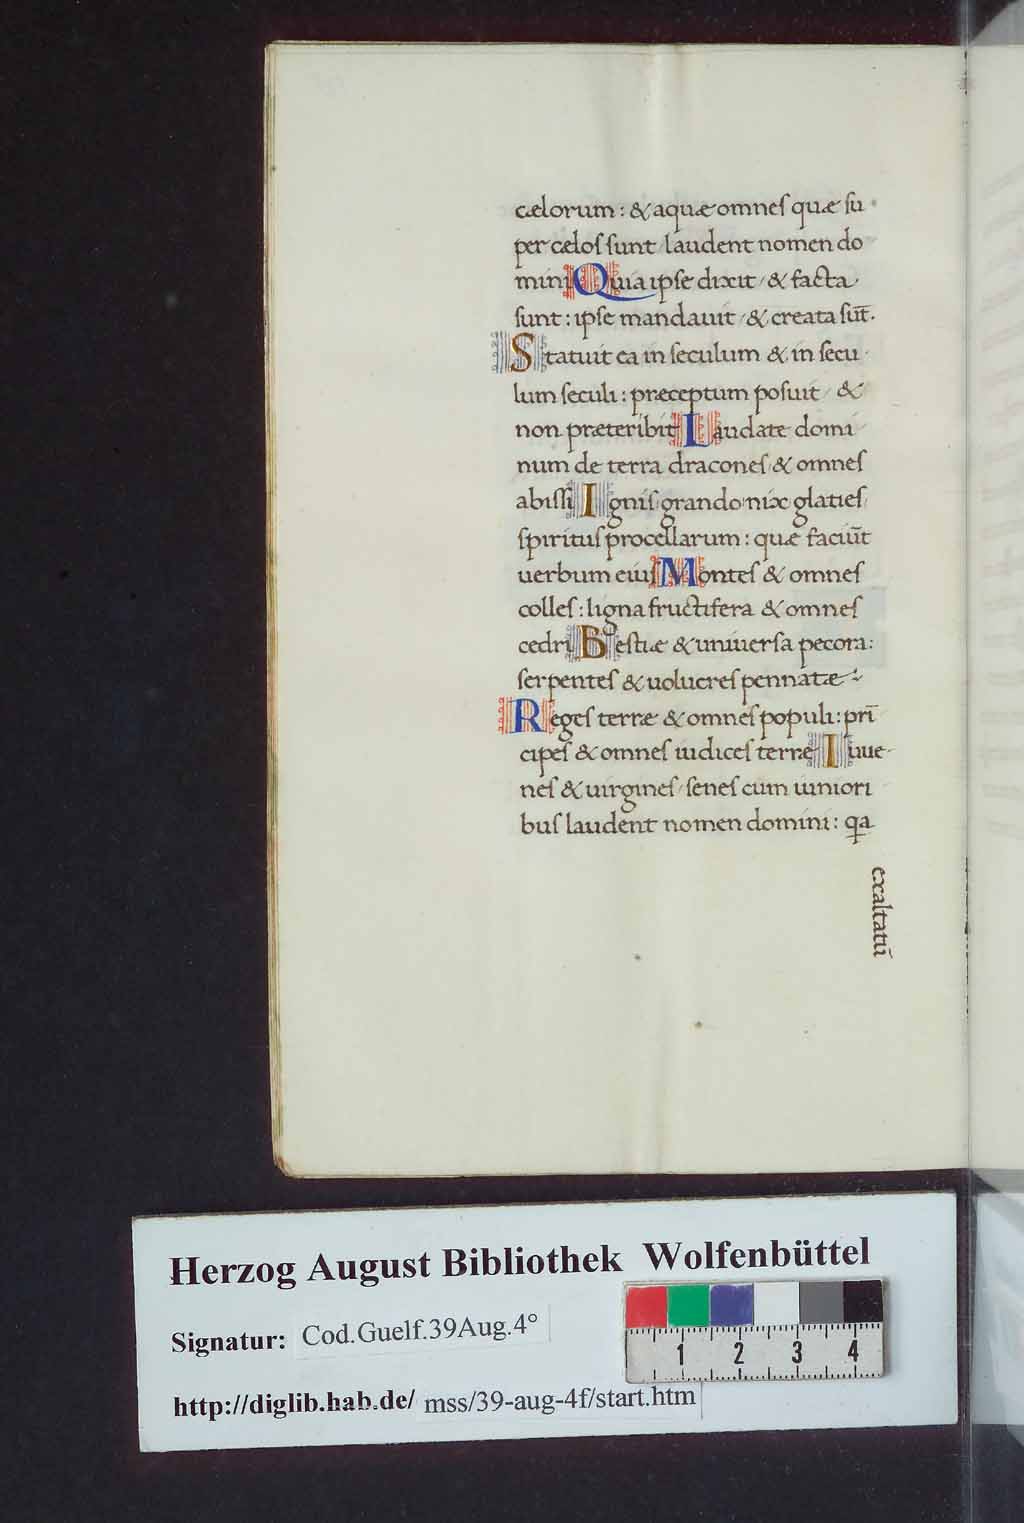 cælorum : & aquæ omnes quæ su
per cælos sunt / laudent nomen do
mini Quia ipse dixit / & facta
sunt : ipse mandauit / & creata sūt.
Statuit ea in seculum & in secu
lum seculi : præceptum posuit / &
non præteribit Laudate domi
num de terra dracones & omnes
abissi Ignis grando nix glaties
spiritus procellarum : quæ faciūt
uerbum eius Montes & omnes
colles : ligna fructifera & omnes
cedri Bestiæ & uniuersa pecora :
serpentes & uolucres pennatæ
Reges terræ & omnes populi : pri̅
cipes & omnes iudices terræ Iuue
nes & uirgines / senes cum iuniori
bus laudent nomen domini : qa
exaltatū
Herzog August Bibliothek Wolfenbüttel
Signatur: Cod.Guelf.39Aug.4°
http://diglib.hab.de/ mss/39-aug-4f/start.htm
1 2 3 4